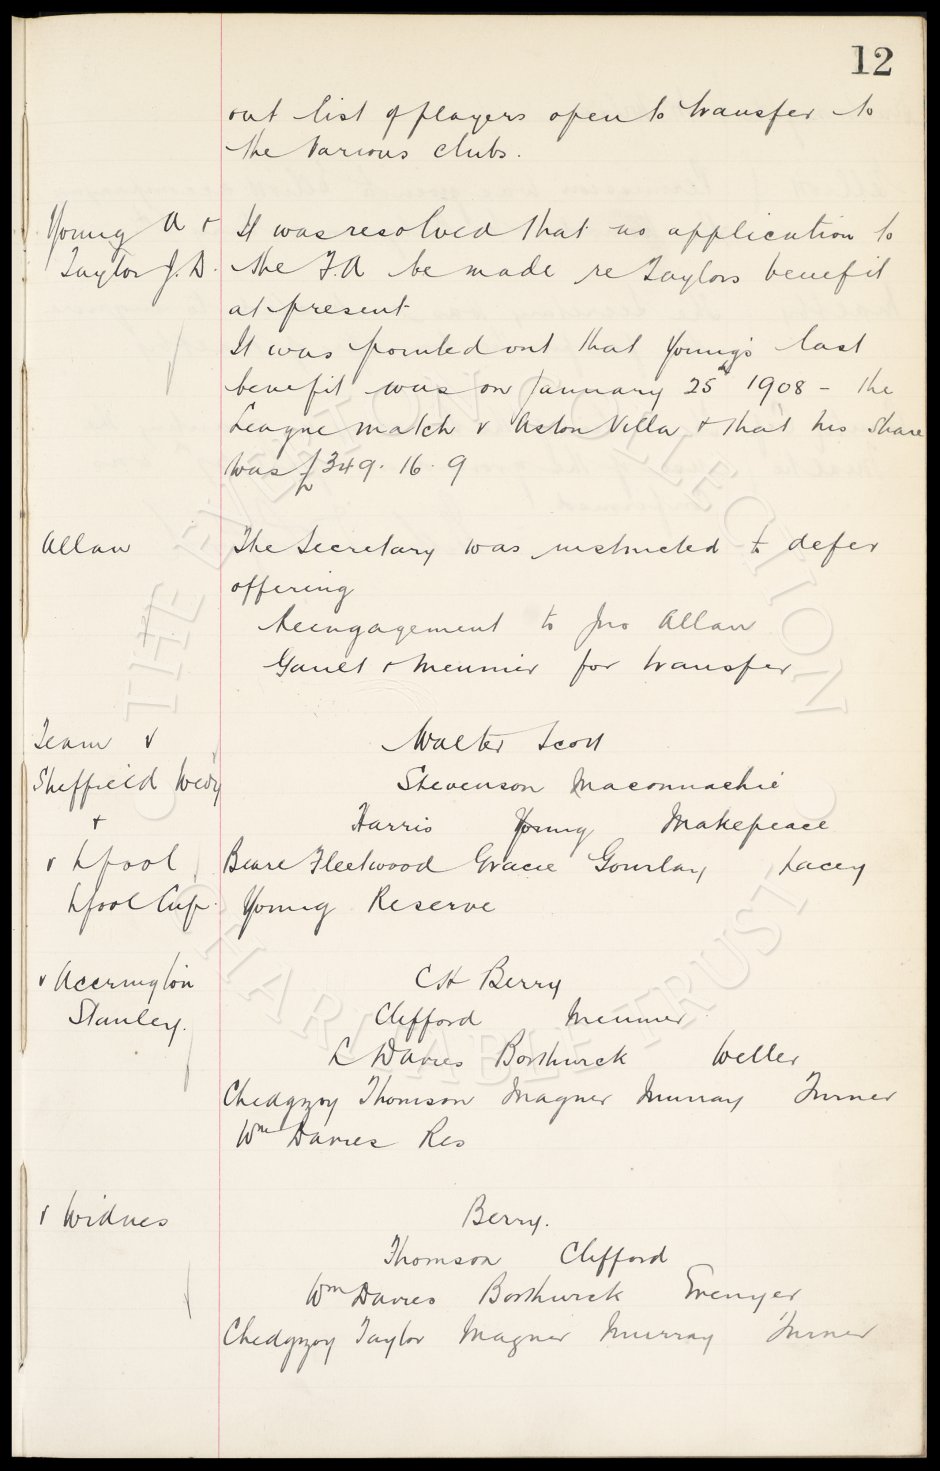 12
out list of players open to transfer to
the various clubs.
Young A & It was resolved that no application to
Taylor J.D. the F.A be made re Taylors benefit
at present
It was pointed out that Young's last
benefit was on January 25th 1908 - the
League match v Aston Villa & that his share
was £349.16.9
Allan The Secretary was instructed to defer
offering
Reengagement to Jno Allan
Gault & Meunier for transfer
Team v Walter Scott
Sheffield Wedy Stevenson Maconnachie
+ Harris Young Makepeace
v Lpool Beare Fleetwood Gracie Gourlay Lacey
Lpool Cup. Young Reserve
v Accrington C H Berry
Stanley. Clifford Meunier
L Davies Borthwick Weller
Chedgzoy Thomson Magner Murray Turner
Wm Davies Res
v Widnes Berry.
Thomson Clifford
Wm Davies Borthwick
Chedgzoy Taylor Magner Murray Turner
THE EVERTON COLLECTION
CHARITABLE TRUST